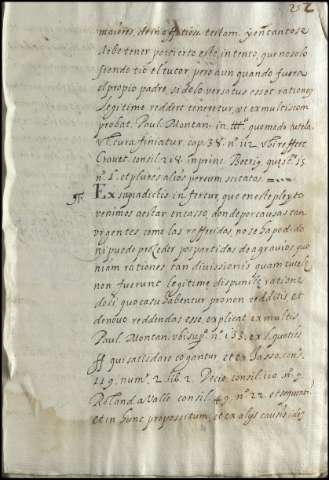 252
maiores
teriam. y en tanto se
debe tener por cierto este intento que no solo
siendo tio el tutor pero aun quando fuera
el propio padre, si dolo versatus esset rationes
legitime reddire teneretur, ut ex multis com
probat. Paul. Montan. in ttt.º quemodo tutela,
vl cura finiatur. cap. 38. n.º 112. ubi reffert
Gravt. consil. 218. in prin. Boerig. quist.º 15
n.º 1. et plures alios per eum scitatos.
Ex supradictis infertur que en este pleyto
venimos a estar en casso, donde por causas tan
vrgentes como las refferidas, no se ha podido
ni puede proceder por partidas de agravios, quo
niam rationes tan divissionis quam tutelę
non fuerunt legitime dispuncte ratione
doli, quo casu habentur pro non redditis et
denovo reddendas esse, explicat ex multis,
Paul. Montan. ubi sup.ª n.º 133. ex l. qualis
ff. qui satisdare cogantur, et ex Jasso, cons.
119. num.º 2. lib. 2. Decio consil. 110. n.º 9.
Roland. a Valle consil. 49. n.º 22. et sequenti.
et in hunc propossitum, et ex alijs causis idẽ